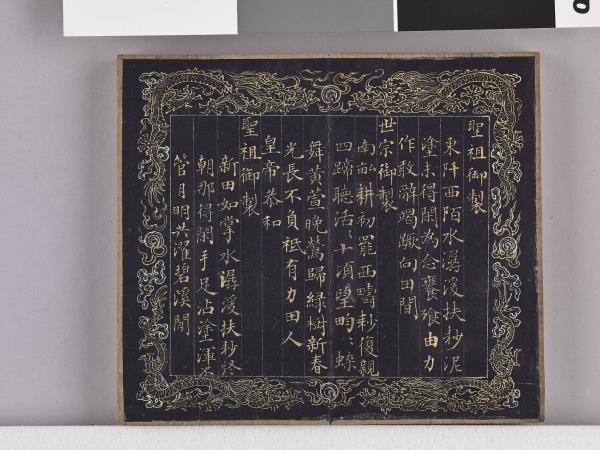 聖祖御製
東阡西陌水潺湲扶耖泥
塗未得閒為念饔飱由力
作敢辭竭蹶向田間
世宗御製
南畝耕初罷西疇耖復親
四蹄聽活〻十頃望畇〻蝶
舞黃萱晚鶯歸綠樹新春
光長不負祗有力田人
皇帝恭和
聖祖御製
新田如掌水潺湲扶耖終
朝那得閒手足沾塗渾不
管月明共濯碧溪間